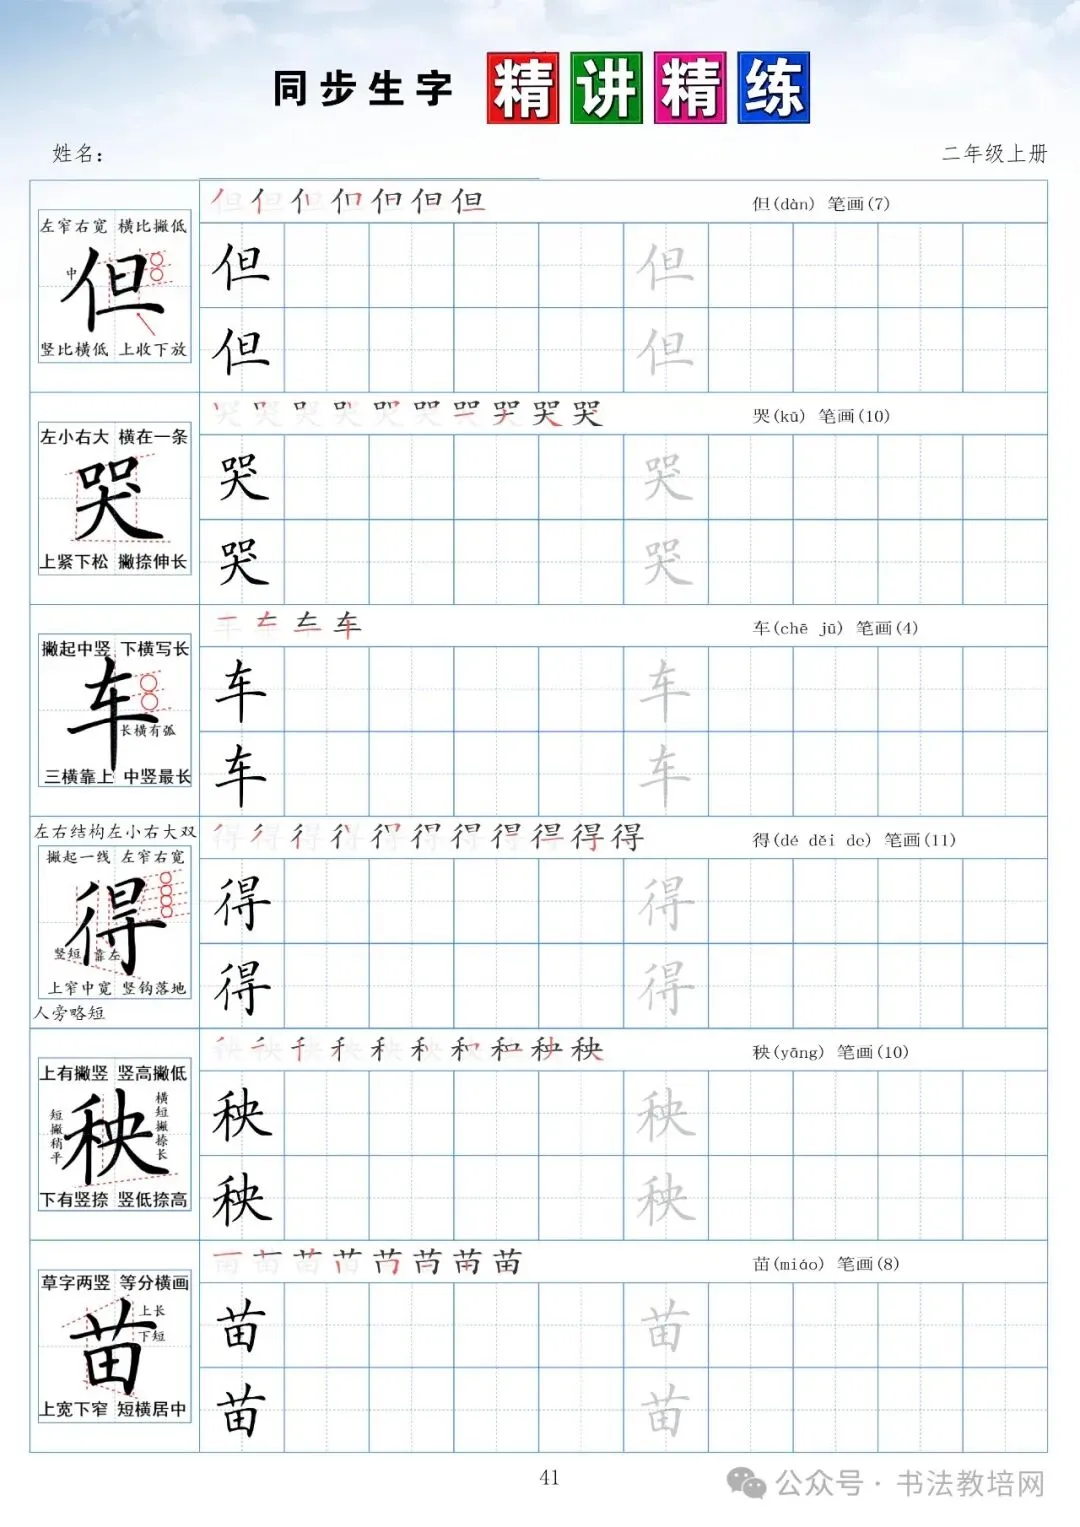 同步生字 精讲精练
姓名：
二年级上册
但(dàn) 笔画(7)
左窄右宽 横比撇低
中
但
竖比横低 上收下放
但 但
但 但
哭(kū) 笔画(10)
左小右大 横在一条
哭
上紧下松 撇捺伸长
哭 哭
哭 哭
车(chē jū) 笔画(4)
撇起中竖 下横写长
车
长横有弧
三横靠上 中竖最长
车 车
车 车
得(dé děi de) 笔画(11)
左右结构左小右大双
撇起一线 左窄右宽
得
竖短 靠左
上窄中宽 竖钩落地
人旁略短
得 得
得 得
秧(yāng) 笔画(10)
上有撇竖 竖高撇低
短撇稍平
秧
横短撇捺长
下有竖捺 竖低捺高
秧 秧
秧 秧
苗(miáo) 笔画(8)
草字两竖 等分横画
上长
下短
苗
上宽下窄 短横居中
苗 苗
苗 苗
41
公众号·书法教培网